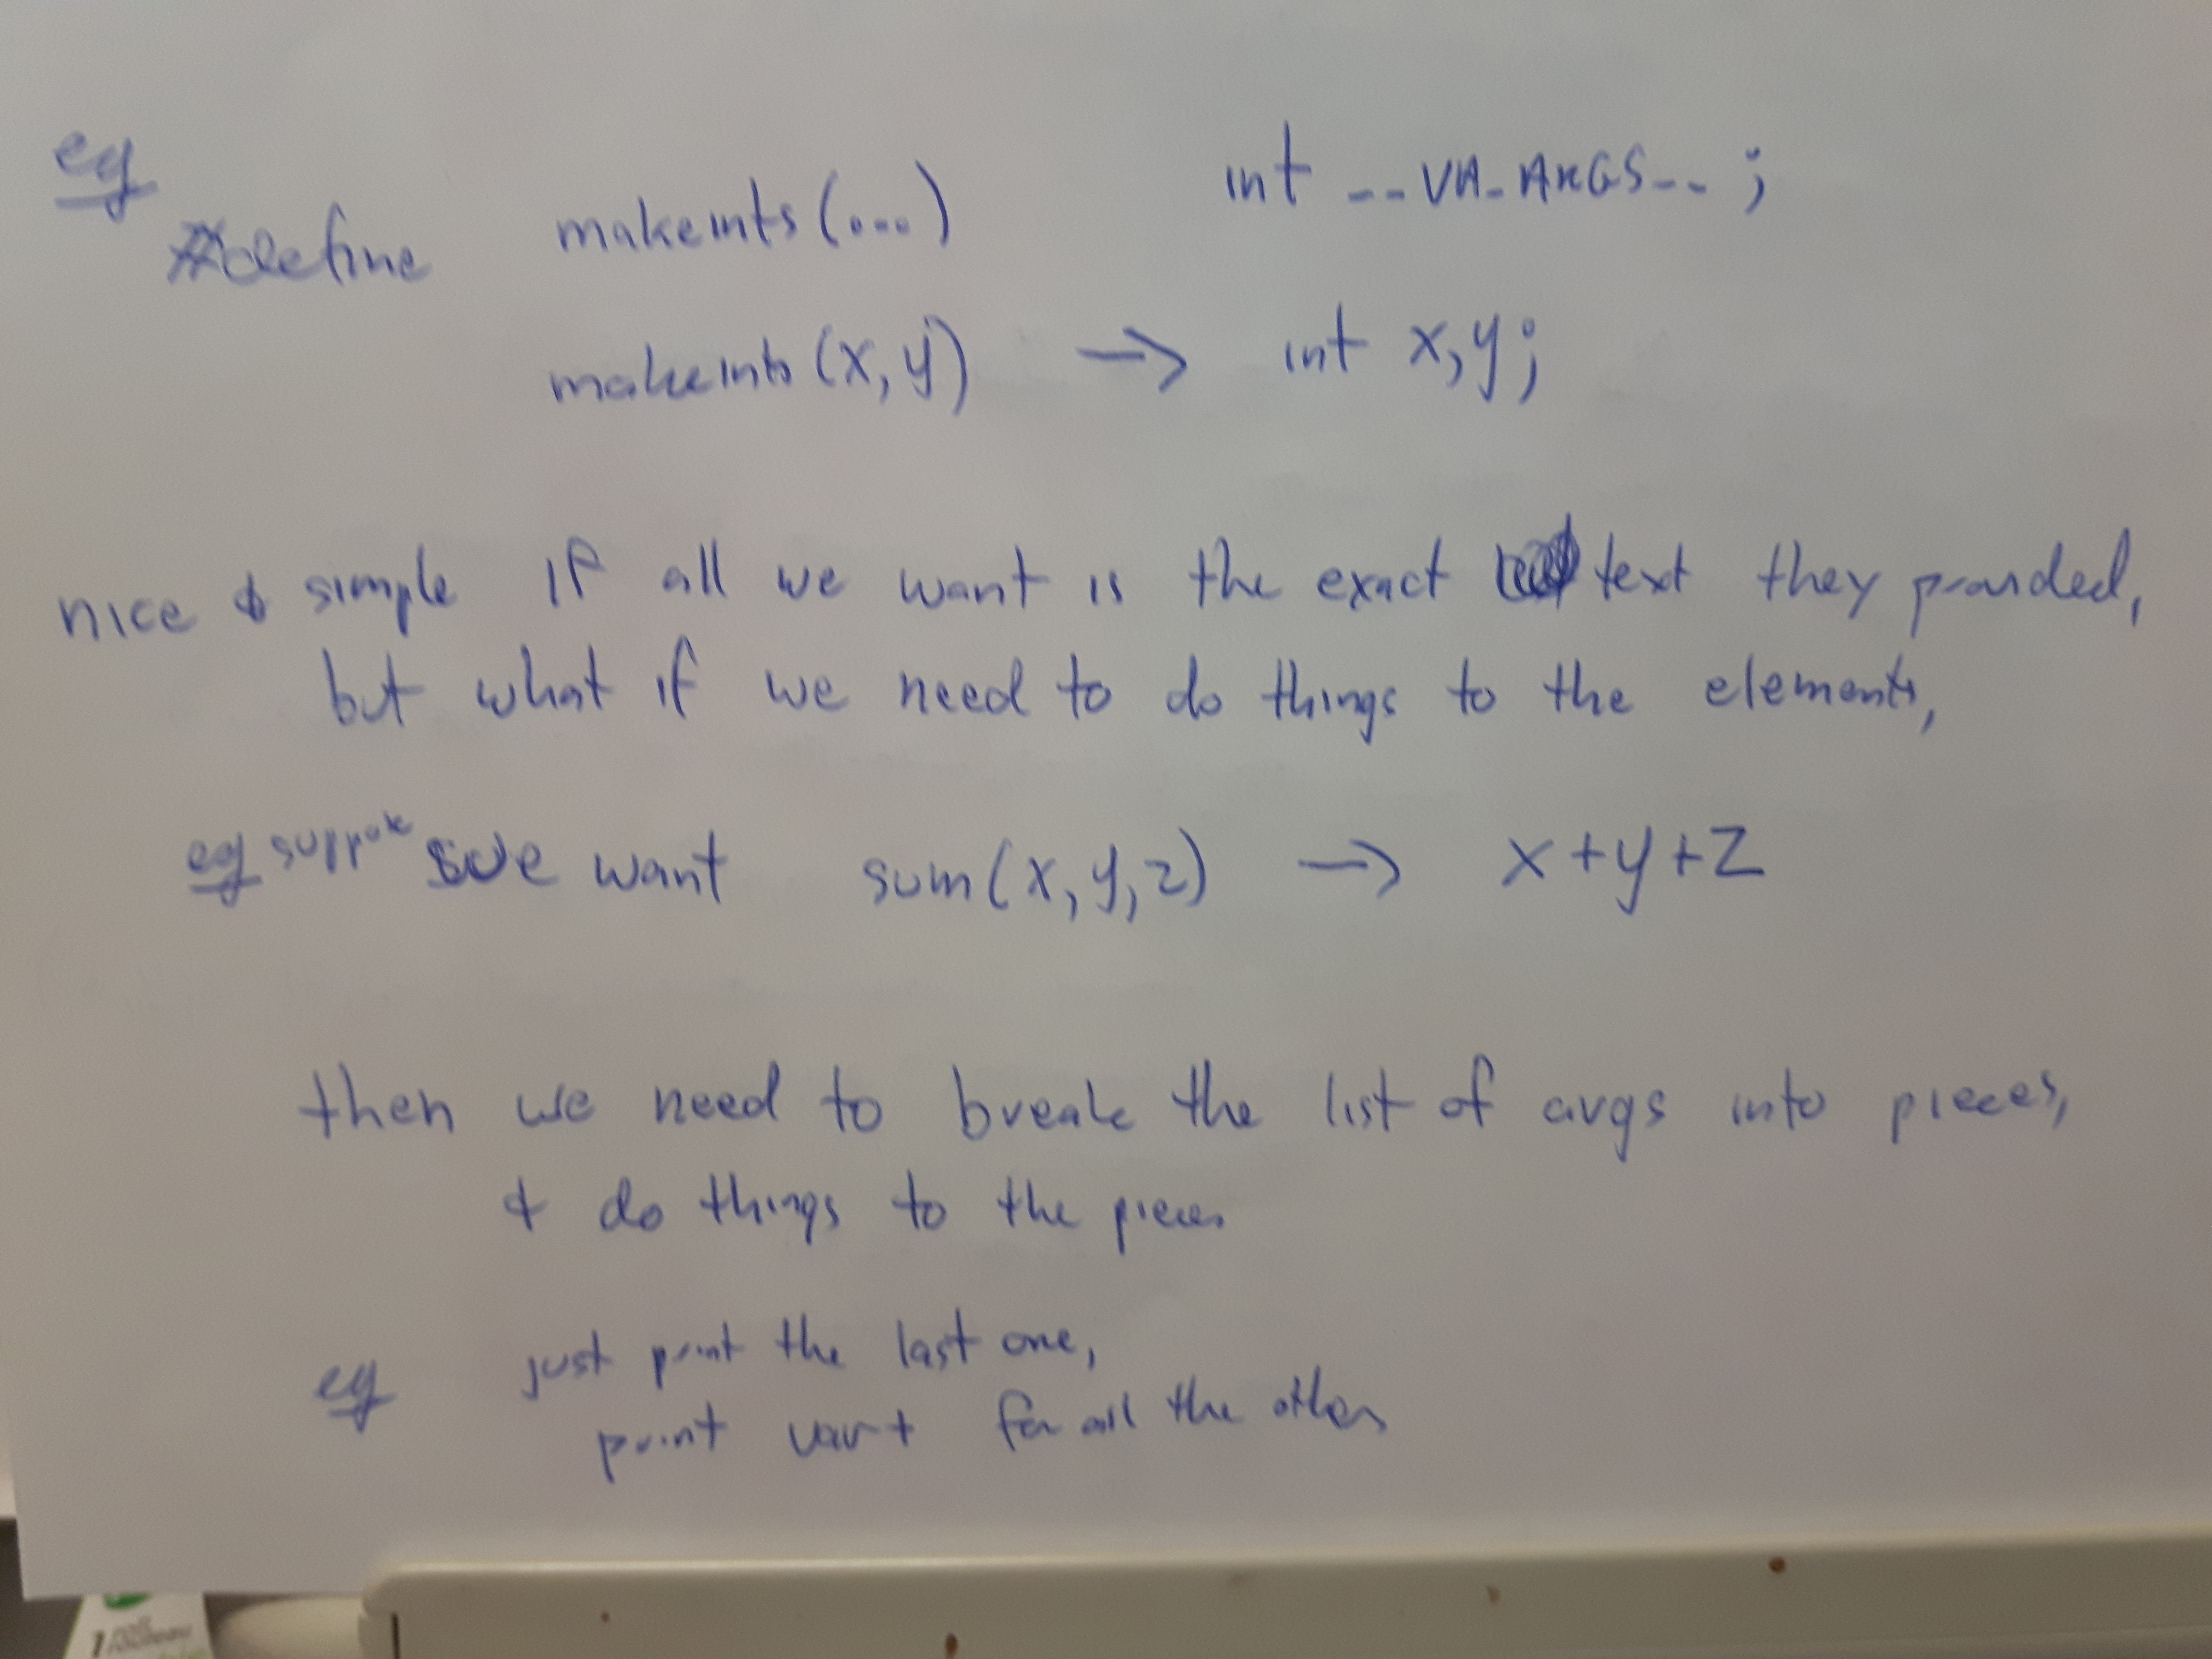 eg
#define makeints(...) int __VA_ARGS__;
makeints(x,y) → int x,y;
nice & simple if all we want is the exact text they provided,
but what if we need to do things to the elements,
eg suppose we want sum(x,y,z) → x+y+z
then we need to break the list of args into pieces,
& do things to the pieces
eg just print the last one,
print var + for all the others
1